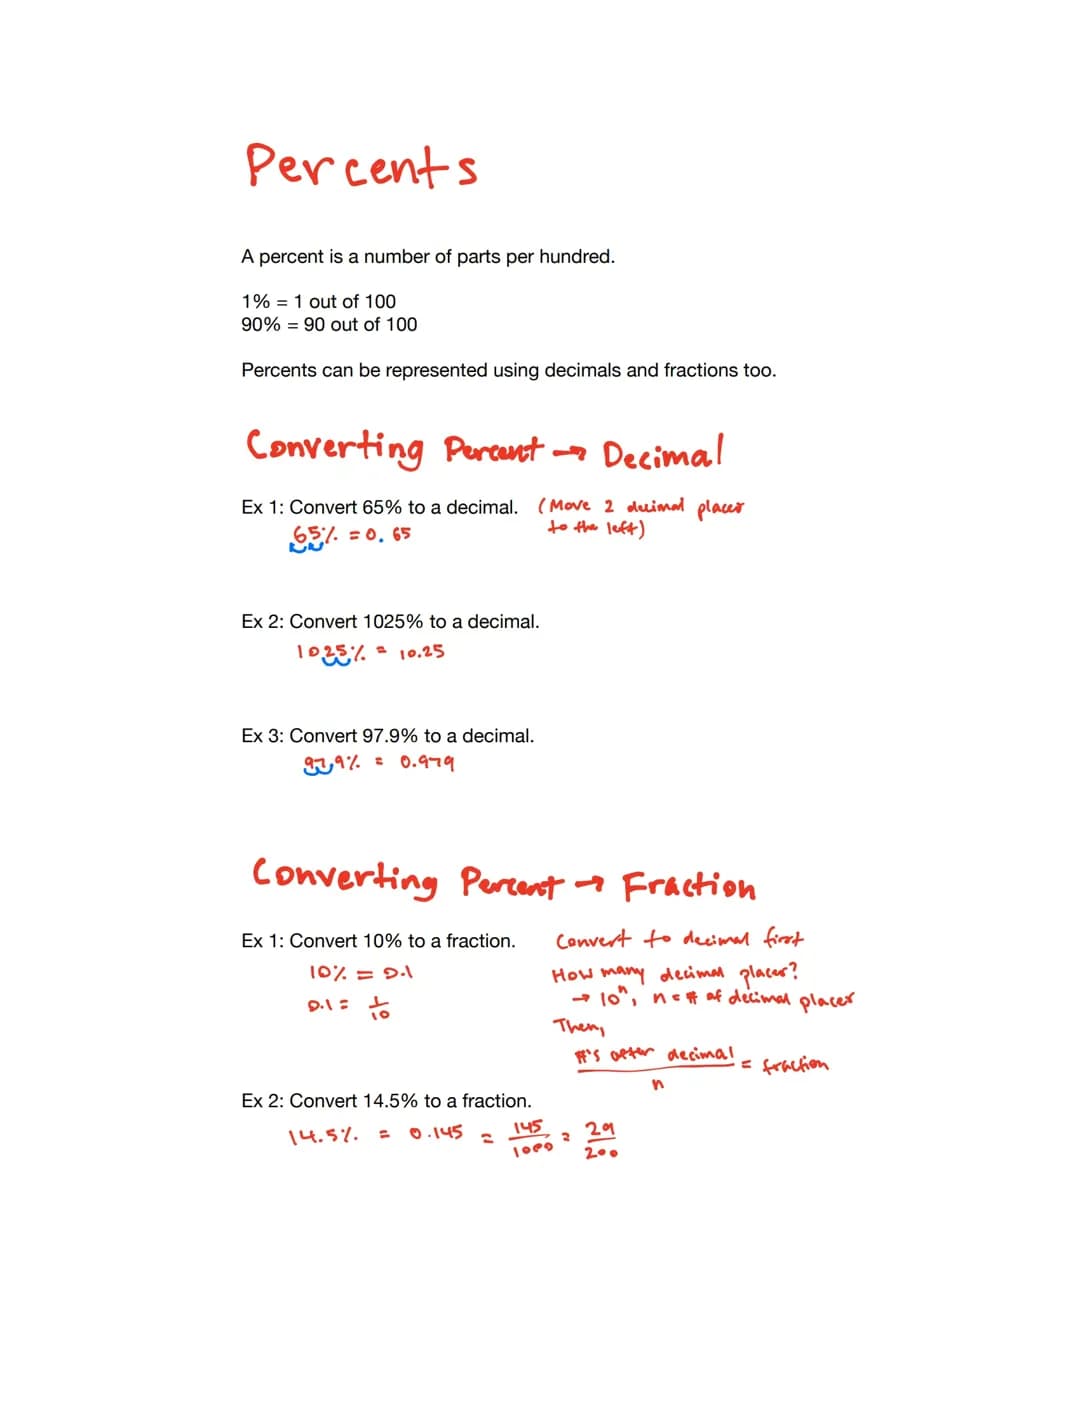 Percents
A percent is a number of parts per hundred.
1% = 1 out of 100
90% = 90 out of 100
Percents can be represented using decimals and fractions too.
Converting Percent → Decimal
Ex 1: Convert 65% to a decimal. (Move 2 decimal places
to the left)
65% = 0.65
Ex 2: Convert 1025% to a decimal.
1025% = 10.25
Ex 3: Convert 97.9% to a decimal.
97.9% = 0.979
Converting Percent → Fraction
Ex 1: Convert 10% to a fraction.
10% = 0.1
0.1 = 1/10
Convert to decimal first
How many decimal places?
→ 10^n, n = # of decimal places
Then,
#'s after decimal
n
= fraction
Ex 2: Convert 14.5% to a fraction.
14.5% = 0.145 = 145/1000 = 29/200